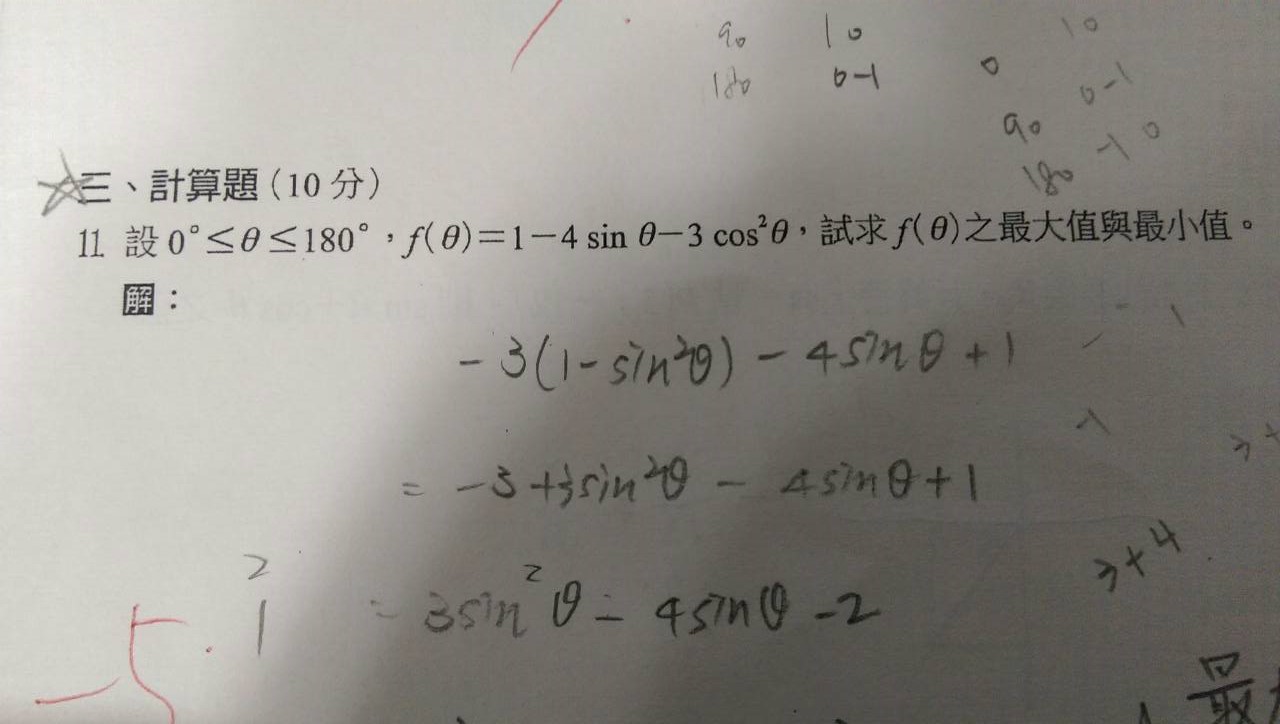 90 10
180 0-1
0 10
90 0-1
180 -1 0
☆三、計算題(10 分)
11. 設 0°≤θ≤180°,f(θ)=1-4 sin θ-3 cos²θ,試求 f(θ)之最大值與最小值。
解:
-3(1-sin²θ) - 4sinθ + 1
= -3+3sin²θ - 4sinθ+1
= 3sin²θ - 4sinθ -2
2
1
3+4
-5
最